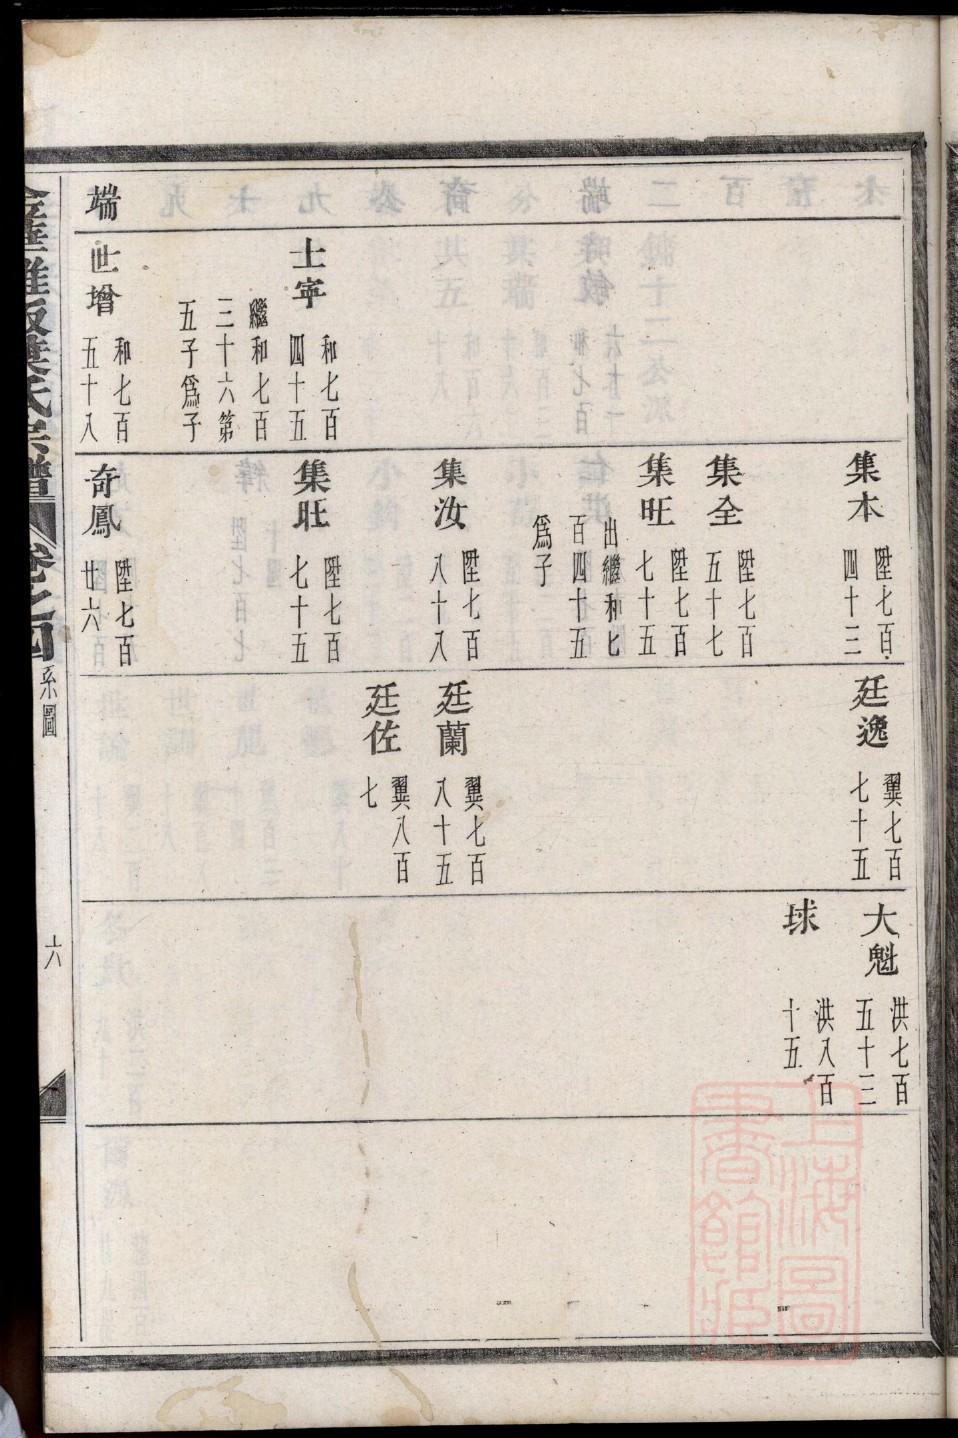 集本 陞七百四十三
廷逸 翼七百七十五
大魁 洪七百五十三
球 洪八百十五
集全 陞七百五十七
集旺 陞七百七十五
出繼和七百四十五爲子
集汝 陞七百八十八
廷蘭 翼七百八十五
廷佐 翼八百七
士寧 和七百四十五
繼和七百三十六第五子爲子
集旺 陞七百七十五
端
世增 和七百五十八
奇鳳 陞七百廿六
葉氏宗譜 卷之四 系圖 六
上海圖書館藏